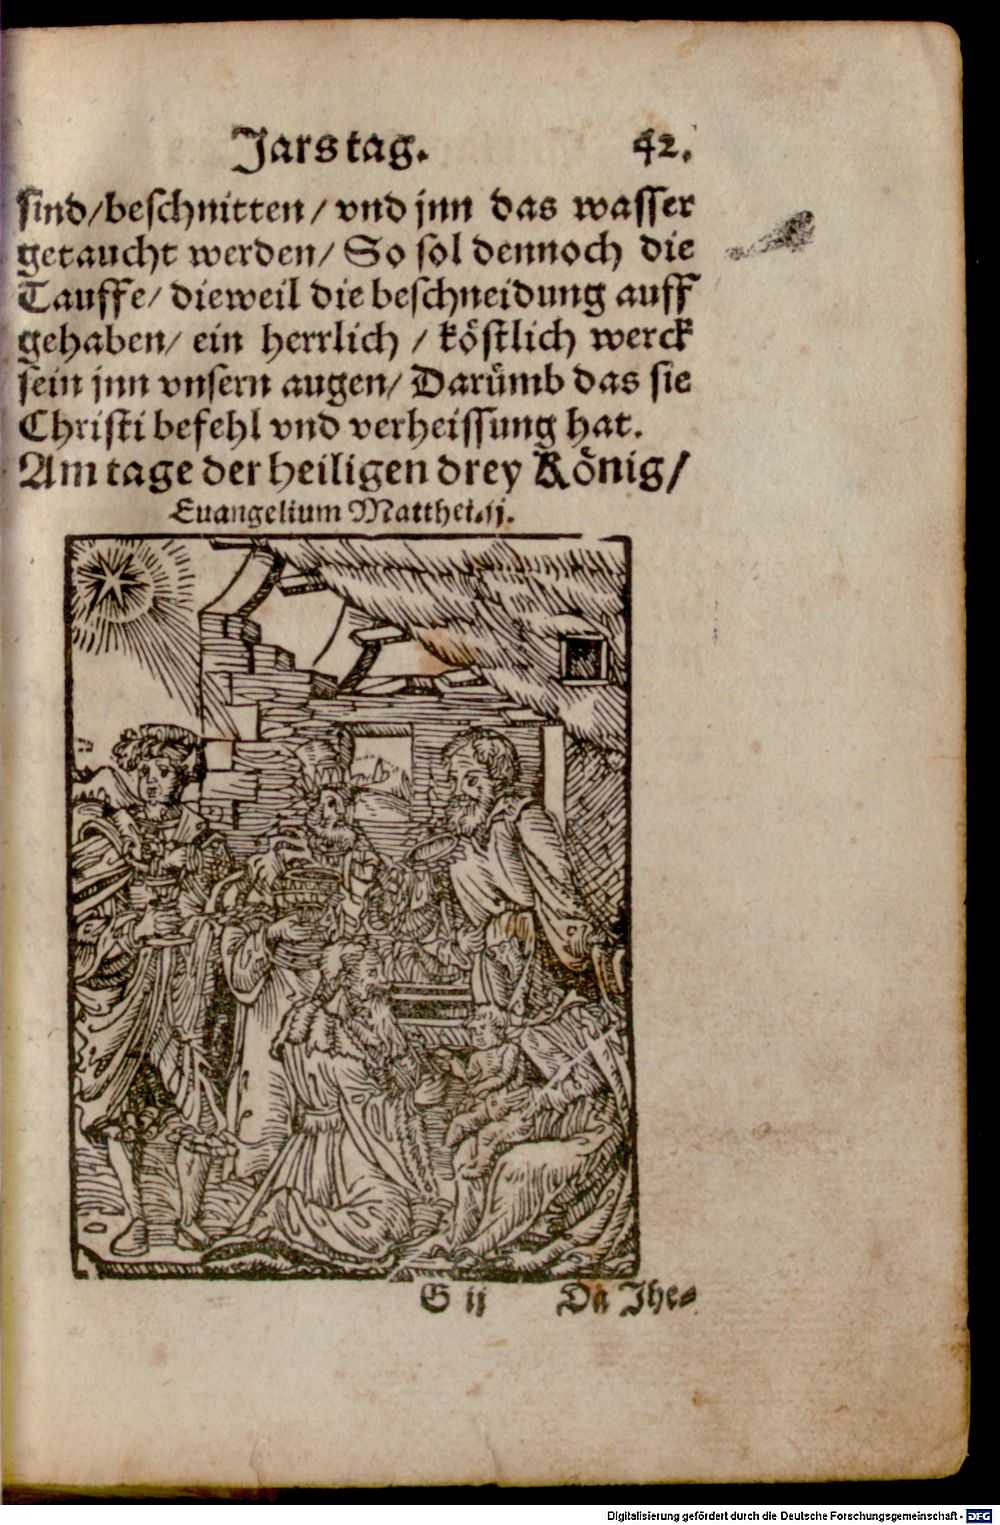 Jarstag. 42.
sind/beschnitten/vnd jnn das wasser
getaucht werden/ So sol dennoch die
Tauffe/ dieweil die beschneidung auff
gehaben/ ein herrlich / köstlich werck
sein jnn vnsern augen/ Darümb das sie
Christi befehl vnd verheissung hat.
Am tage der heiligen drey König/
Euangelium Matthei.ij.
G ij Da Jhe-
Digitalisierung gefördert durch die Deutsche Forschungsgemeinschaft - DFG